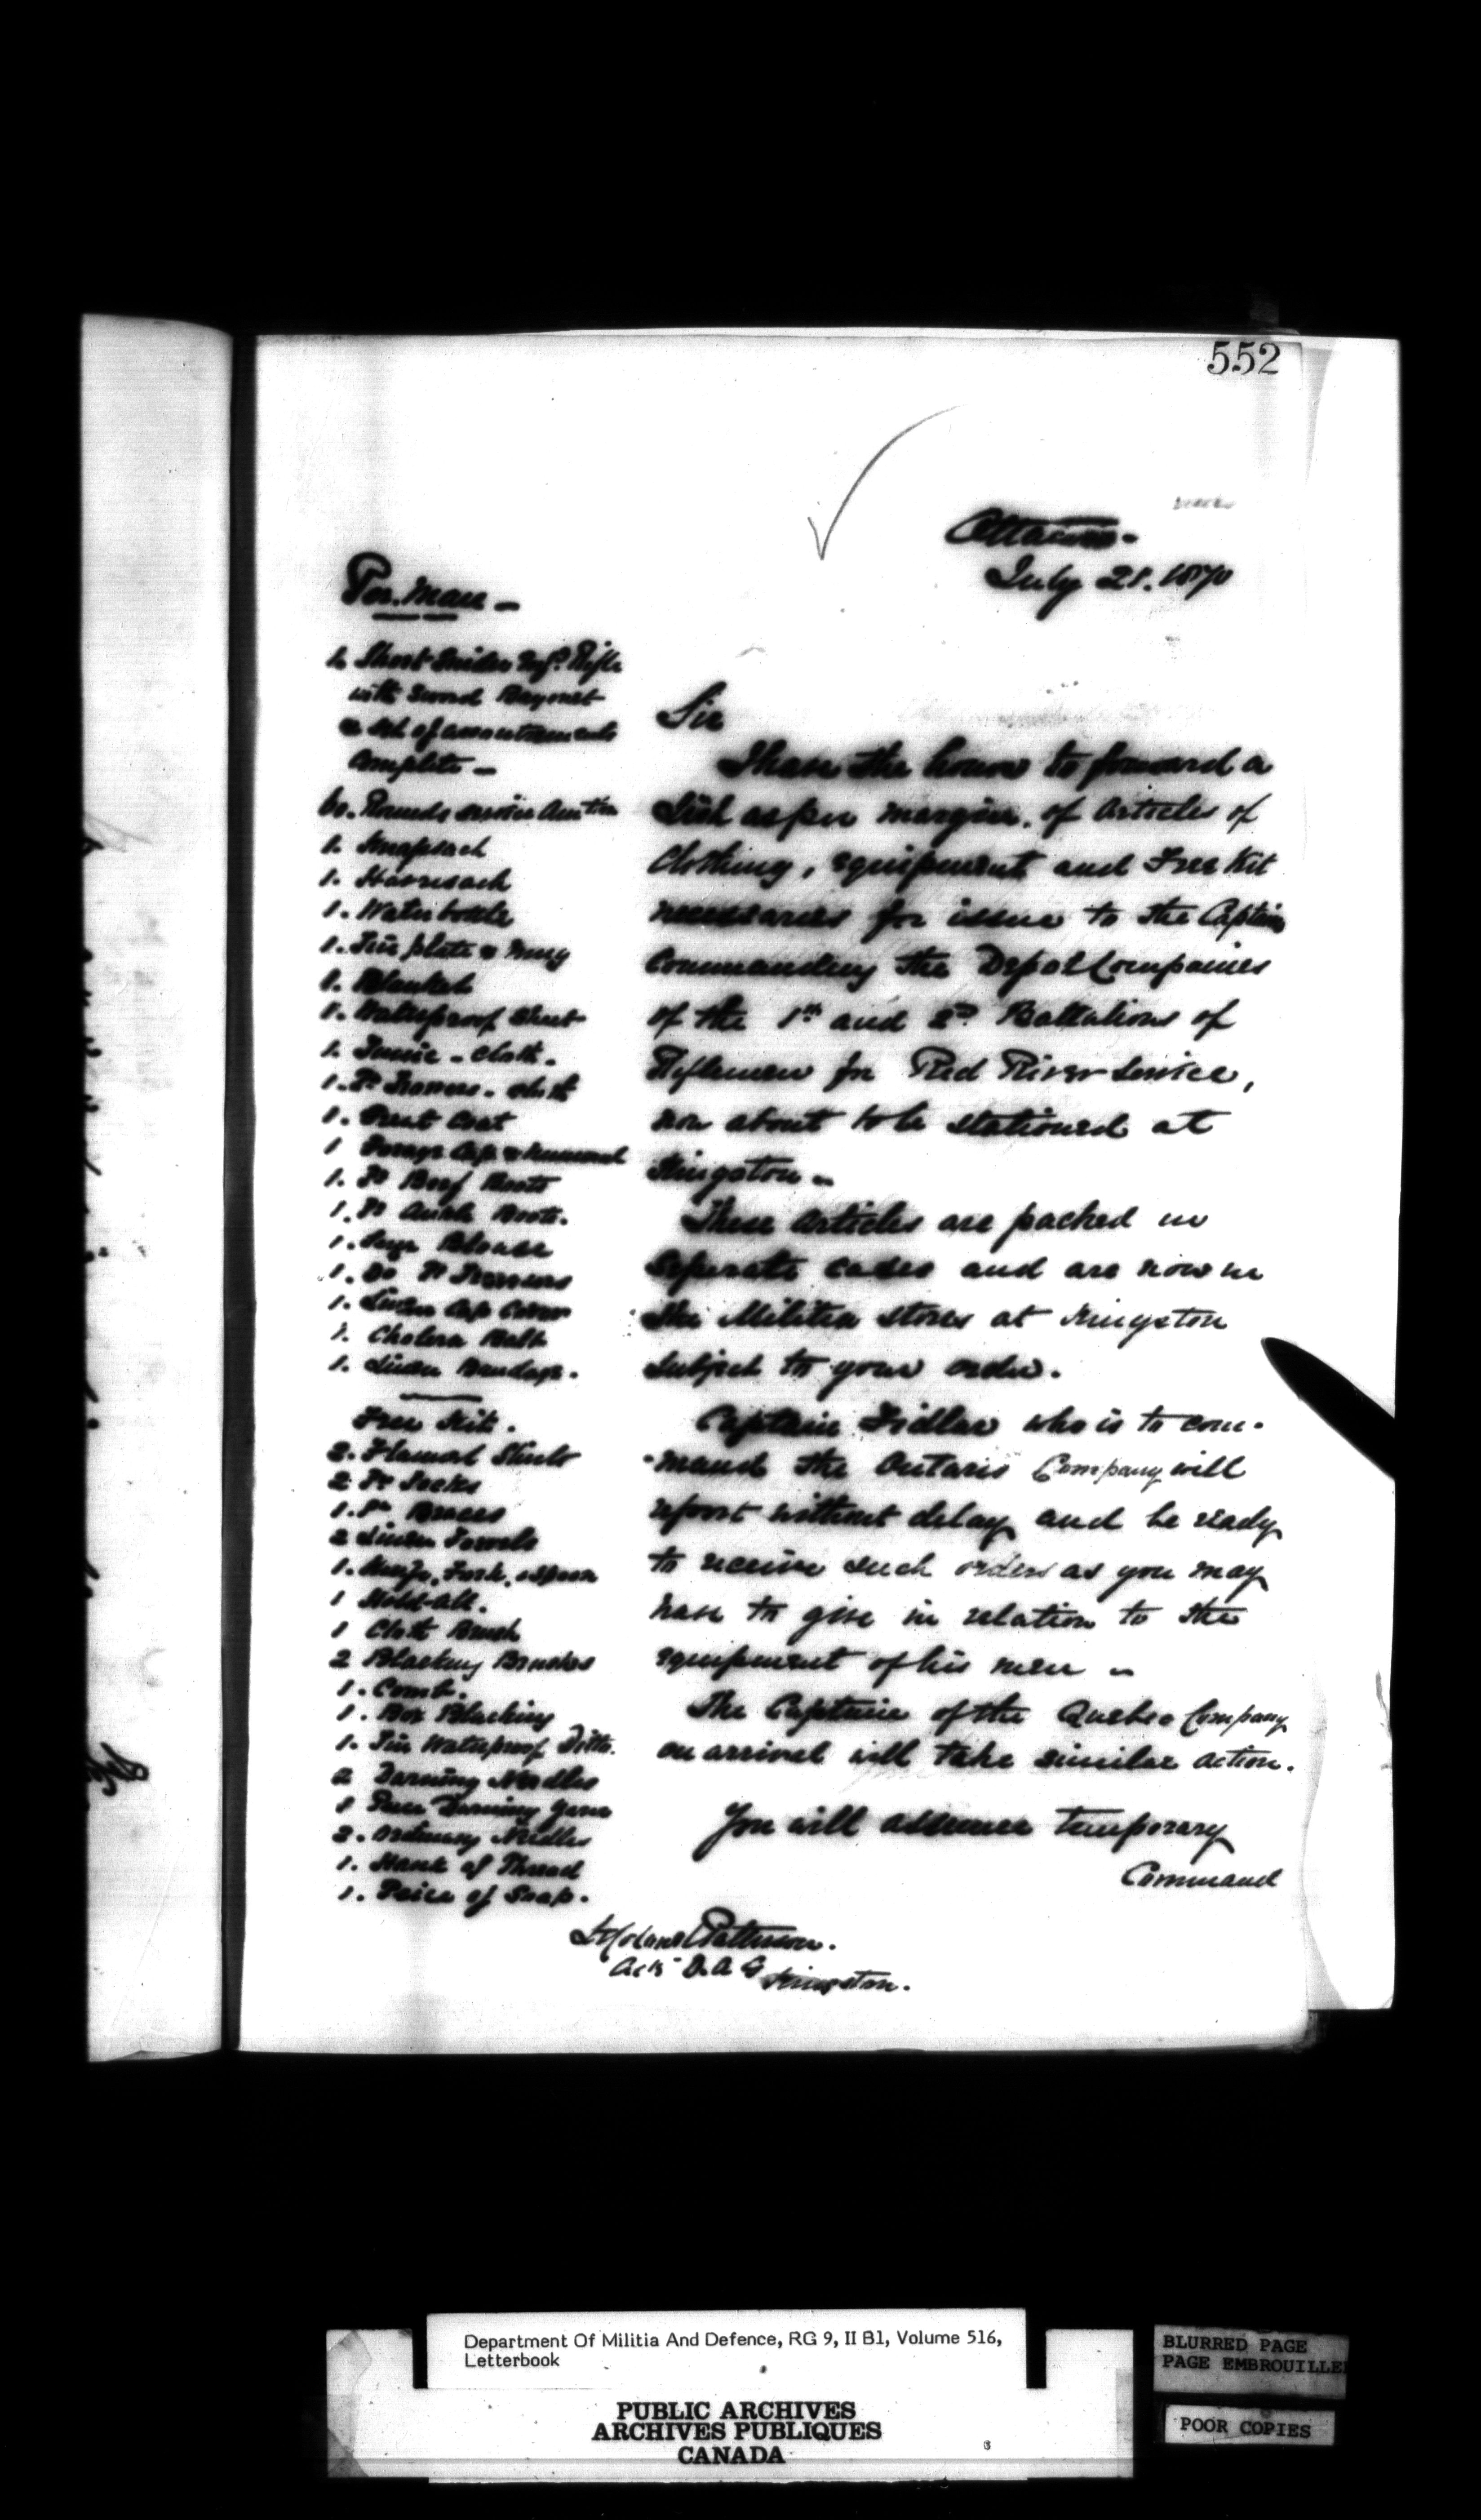 552
Ottawa -
July 21. 1870
Per. Man -
1. Short Snider Enfd. Rifle
with Sword Bayonet
& set of accoutrements
Complete -
60. Rounds service Amtion
1. Knapsack
1. Haversack
1. Waterbottle
1. Tin plate & mug
1. Blanket
1. Waterproof Sheet
1. Tunic - cloth.
1. Pr Trowsers - cloth
1. Great Coat
1 Forage Cap & numeral
1. Pr Beef Boots
1. Pr Ankle Boots.
1. Serge Blouse
1. Do Pr Trowsers
1. Linen Cap Cover
1. Cholera Belt
1. Linen Bandage.
Free Kit.
2. Flannel Shirts
2 Pr Socks
1. Pr Braces
2 Linen Towels
1. Knife, Fork, & Spoon
1 Hold-all.
1 Cloth Brush
2 Blacking Brushes
1. Comb.
1. Box Blacking
1. Tin Waterproof Ditto.
2 Darning Needles
1 Darning Yarn
2. Ordinary Needles
1. Hank of Thread
1. Peice of Soap.
Sir
I have the honor to forward a
List as per margin. of Articles of
Clothing, equipment and Free Kit
necessaries for issue to the Captains
Commanding the Depot Companies
of the 1st and 2d Battalions of
Riflemen for Red River Service,
now about to be stationed at
Kingston -
These articles are packed in
Separate cases and are now in
the Militia stores at Kingston
subject to your order.
Captain Fidlar who is to com-
-mand the Ontario Company will
report without delay and be ready
to receive such orders as you may
have to give in relation to the
equipment of his men -
The Captain of the Quebec Company
on arrival will take similar action.
You will assume temporary
Command
Patterson.
Actg D.A.G
Kingston.
Department Of Militia And Defence, RG 9, II B1, Volume 516,
Letterbook
PUBLIC ARCHIVES
ARCHIVES PUBLIQUES
CANADA
BLURRED PAGE
PAGE EMBROUILLE
POOR COPIES